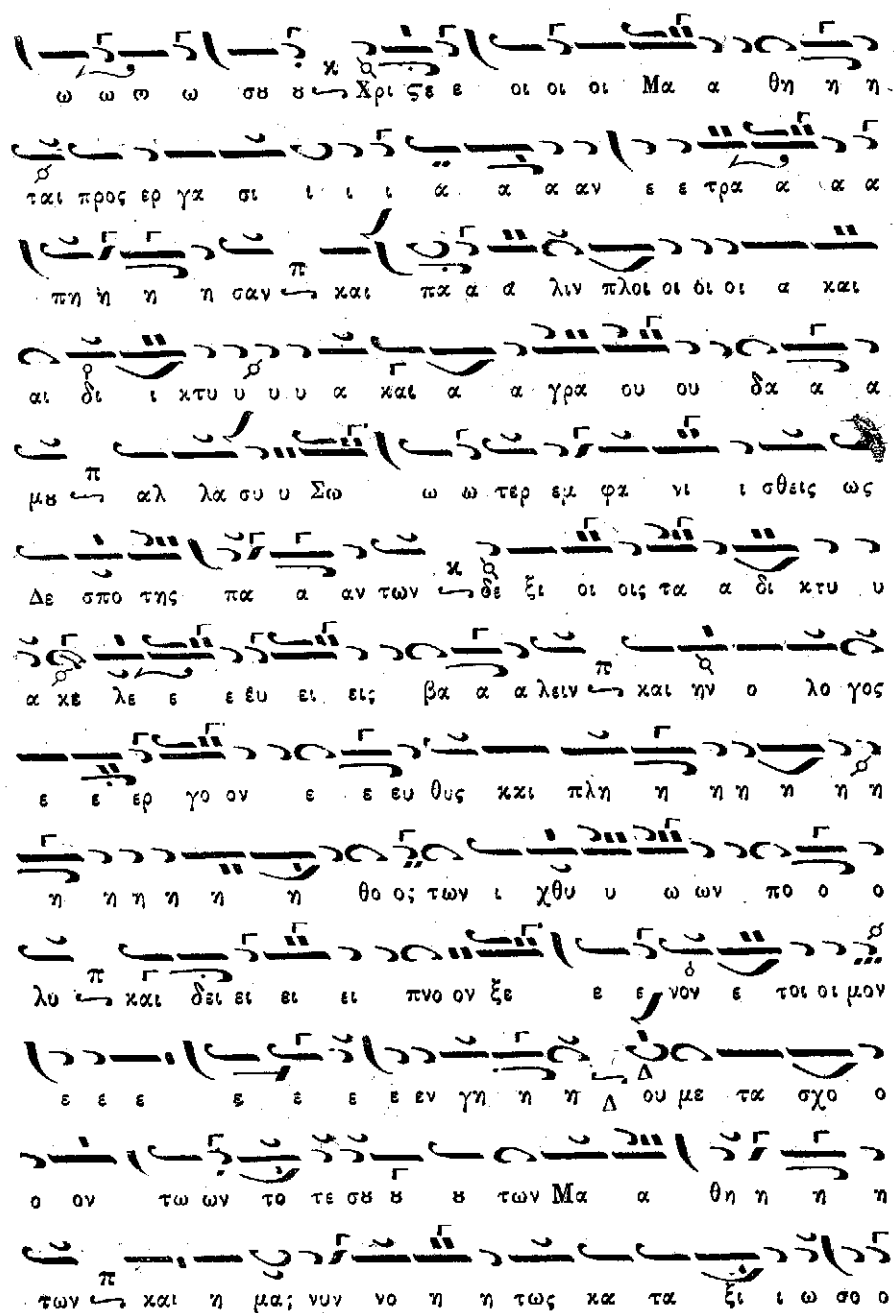 ω ω ω ω σȣ ȣ κ Χρι ϛε ε οι οι οι Μα α θη η η
ται προς ερ γα σι ι ι ι α α α αν ε ε τρα α α α
πη η η η σαν π και πα α α λιν πλοι οι οι οι α και
αι δι ι κτυ υ υ υ α και α α γρα ου ου δα α α
μȣ π αλ λα συ υ Σω ω ω τερ εμ φα νι ι σθεις ως
Δε σπο της πα α αν των κ δε ξι οι οις τα α δι κτυ υ
α κε λε ε ε ευ ει εις βα α α λειν π και ην ο λο γος
ε ε ερ γο ον ε ε ευ θυς και πλη η η η η η η
η η η η η η θο ος των ι χθυ υ ω ων πο ο ο
λυ π και δει ει ει ει πνο ον ξε ε ε νον ε τοι οι μον
ε ε ε ε ε ε ε εν γη η η Δ Δ ου με τα σχο ο
ο ον τω ων το τε σȣ ȣ ȣ των Μα α θη η η η
των π και η μας νυν νο η η τως κα τα ξι ι ω σο ο